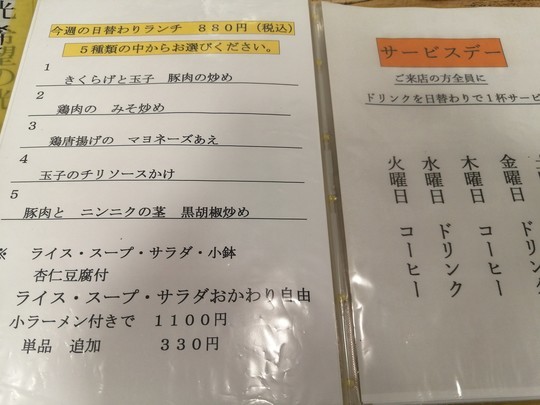 今週の日替わりランチ 880円(税込)
5種類の中からお選びください。
1
きくらげと玉子 豚肉の炒め
2
鶏肉の みそ炒め
3
鶏唐揚げの マヨネーズあえ
4
玉子のチリソースかけ
5
豚肉と ニンニクの茎 黒胡椒炒め
※ ライス・スープ・サラダ・小鉢
杏仁豆腐付
ライス・スープ・サラダおかわり自由
小ラーメン付きで 1100円
単品 追加 330円
サービスデー
ご来店の方全員に
ドリンクを日替わりで1杯サービ
火曜日 コーヒー
水曜日 ドリンク
木曜日 コーヒー
金曜日 ドリン